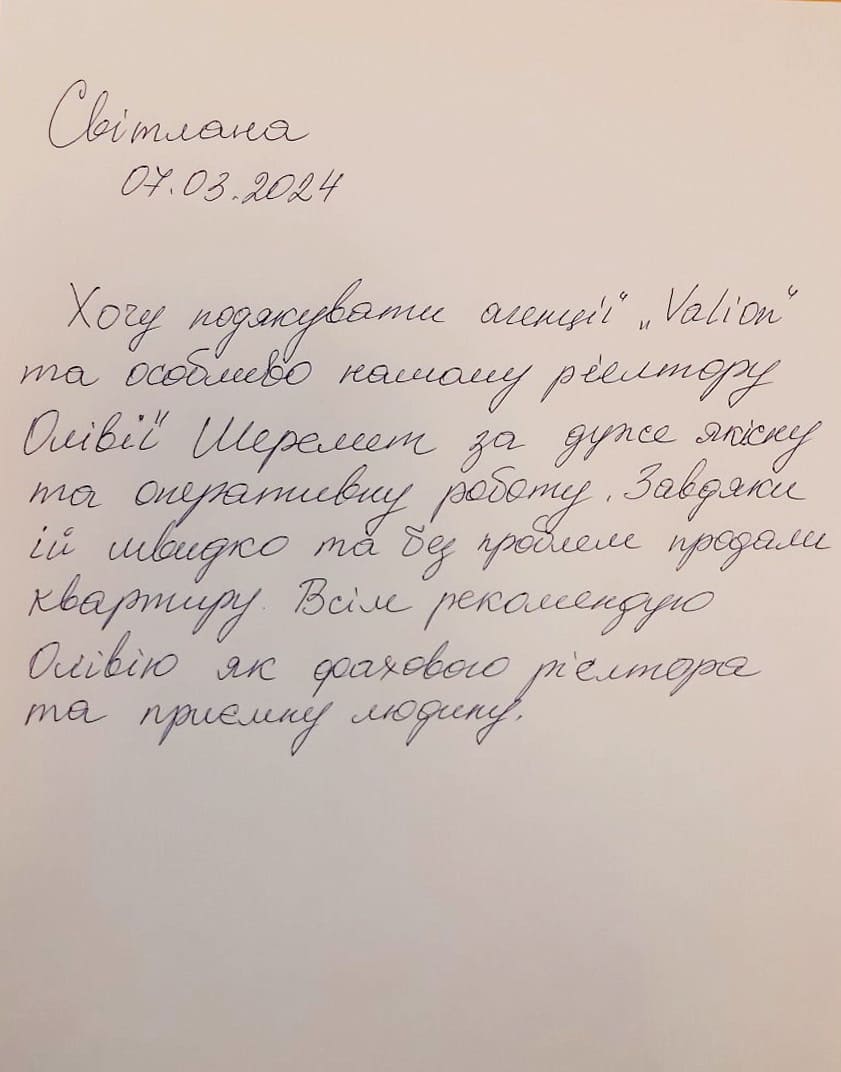 Світлана
07.03.2024
Хочу подякувати агенції „Valion“
та особливо нашому рієлтору
Олівії Шеремет за дуже якісну
та оперативну роботу. Завдяки
їй швидко та без проблем продали
квартиру. Всім рекомендую
Олівію як фахового рієлтора
та приємну людину.